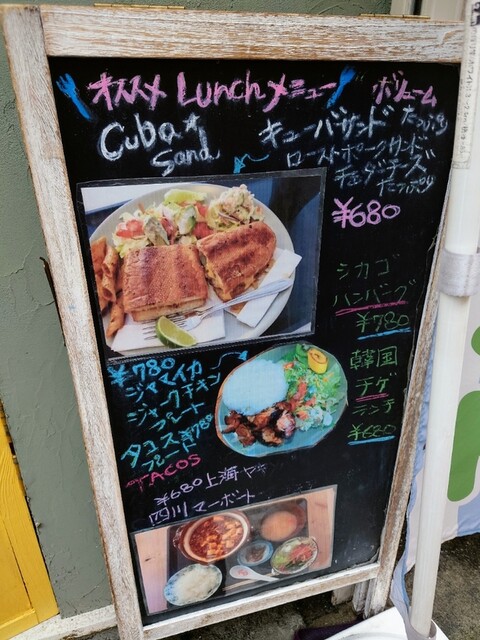 オススメ Lunchメニュー
ボリューム
たっぷり
Cuba★
Sand
キューバサンド
ローストポークサンド
チェダーチーズ
たっぷり
¥680
シカゴ
ハンバーグ
¥780
韓国
チゲ
ランチ
¥680
¥780
ジャマイカ
ジャークチキン
プレート
タコス ¥780
プレート
TACOS
¥680 上海ヤキ
四川 マーボート